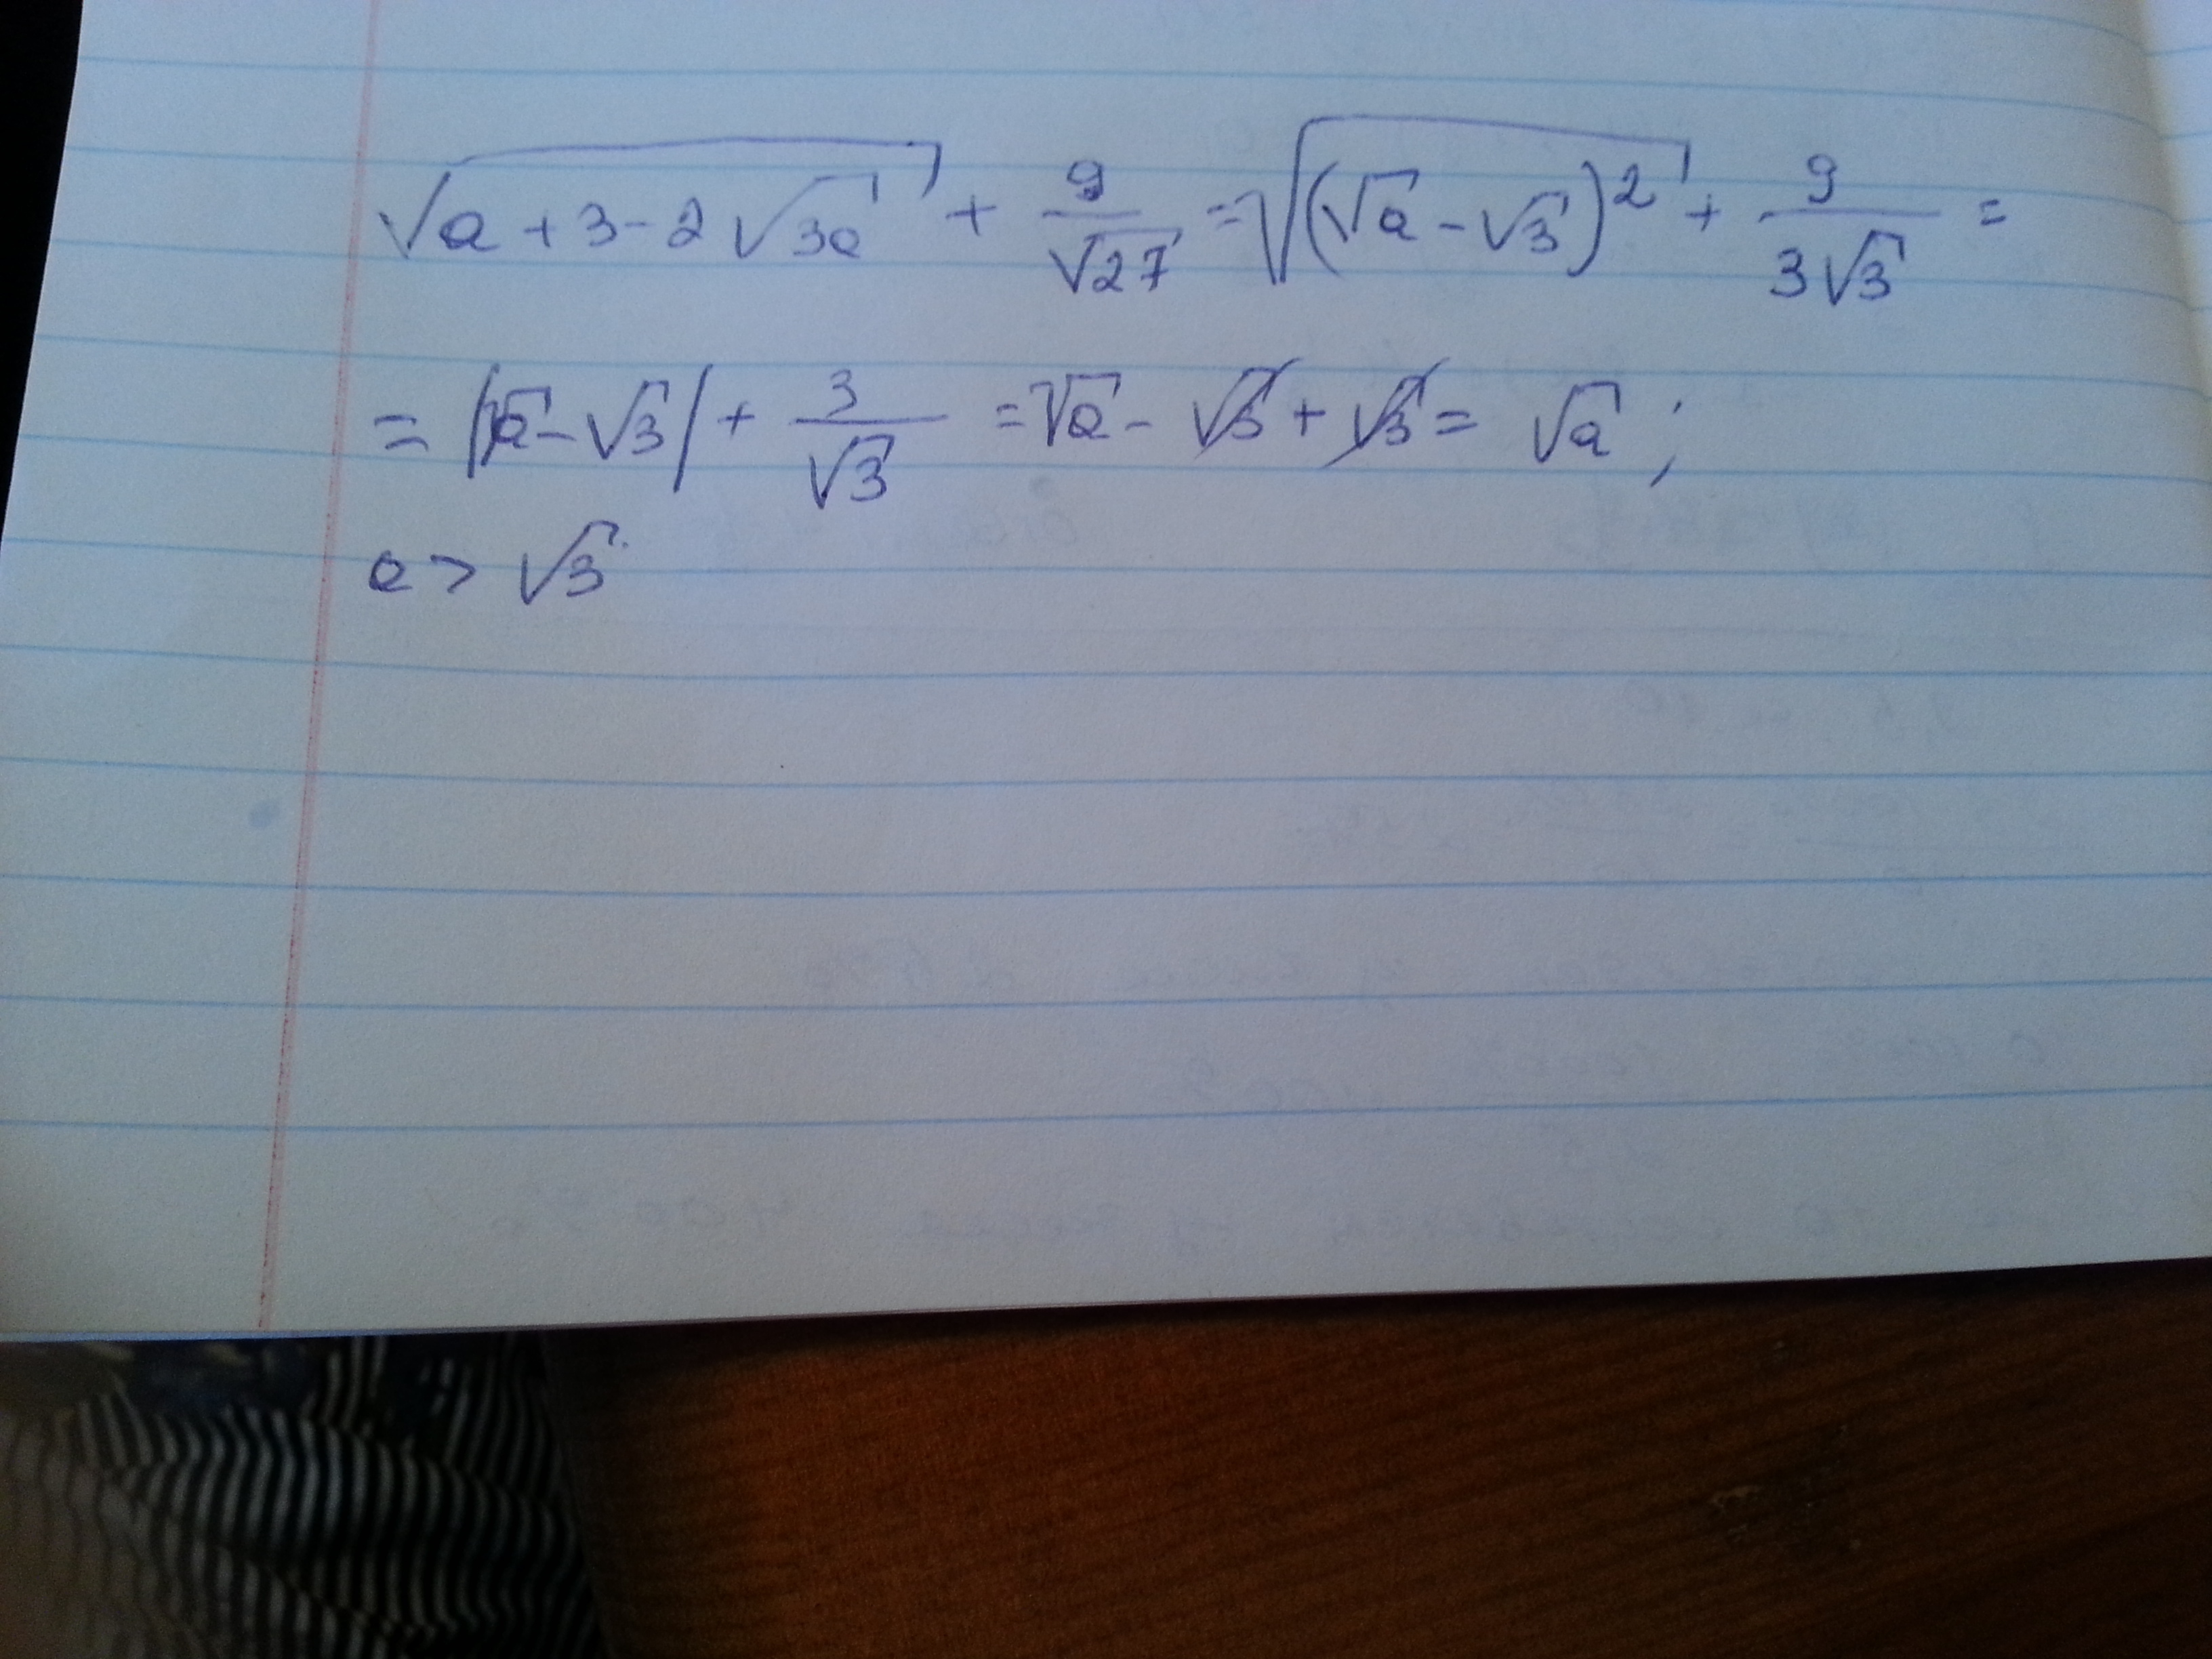 √(a + 3 - 2√(3a)) + 9/√27 = √((√a - √3)²) + 9/(3√3) =
= |√a - √3| + 3/√3 = √a - √3 + √3 = √a ;
a > √3